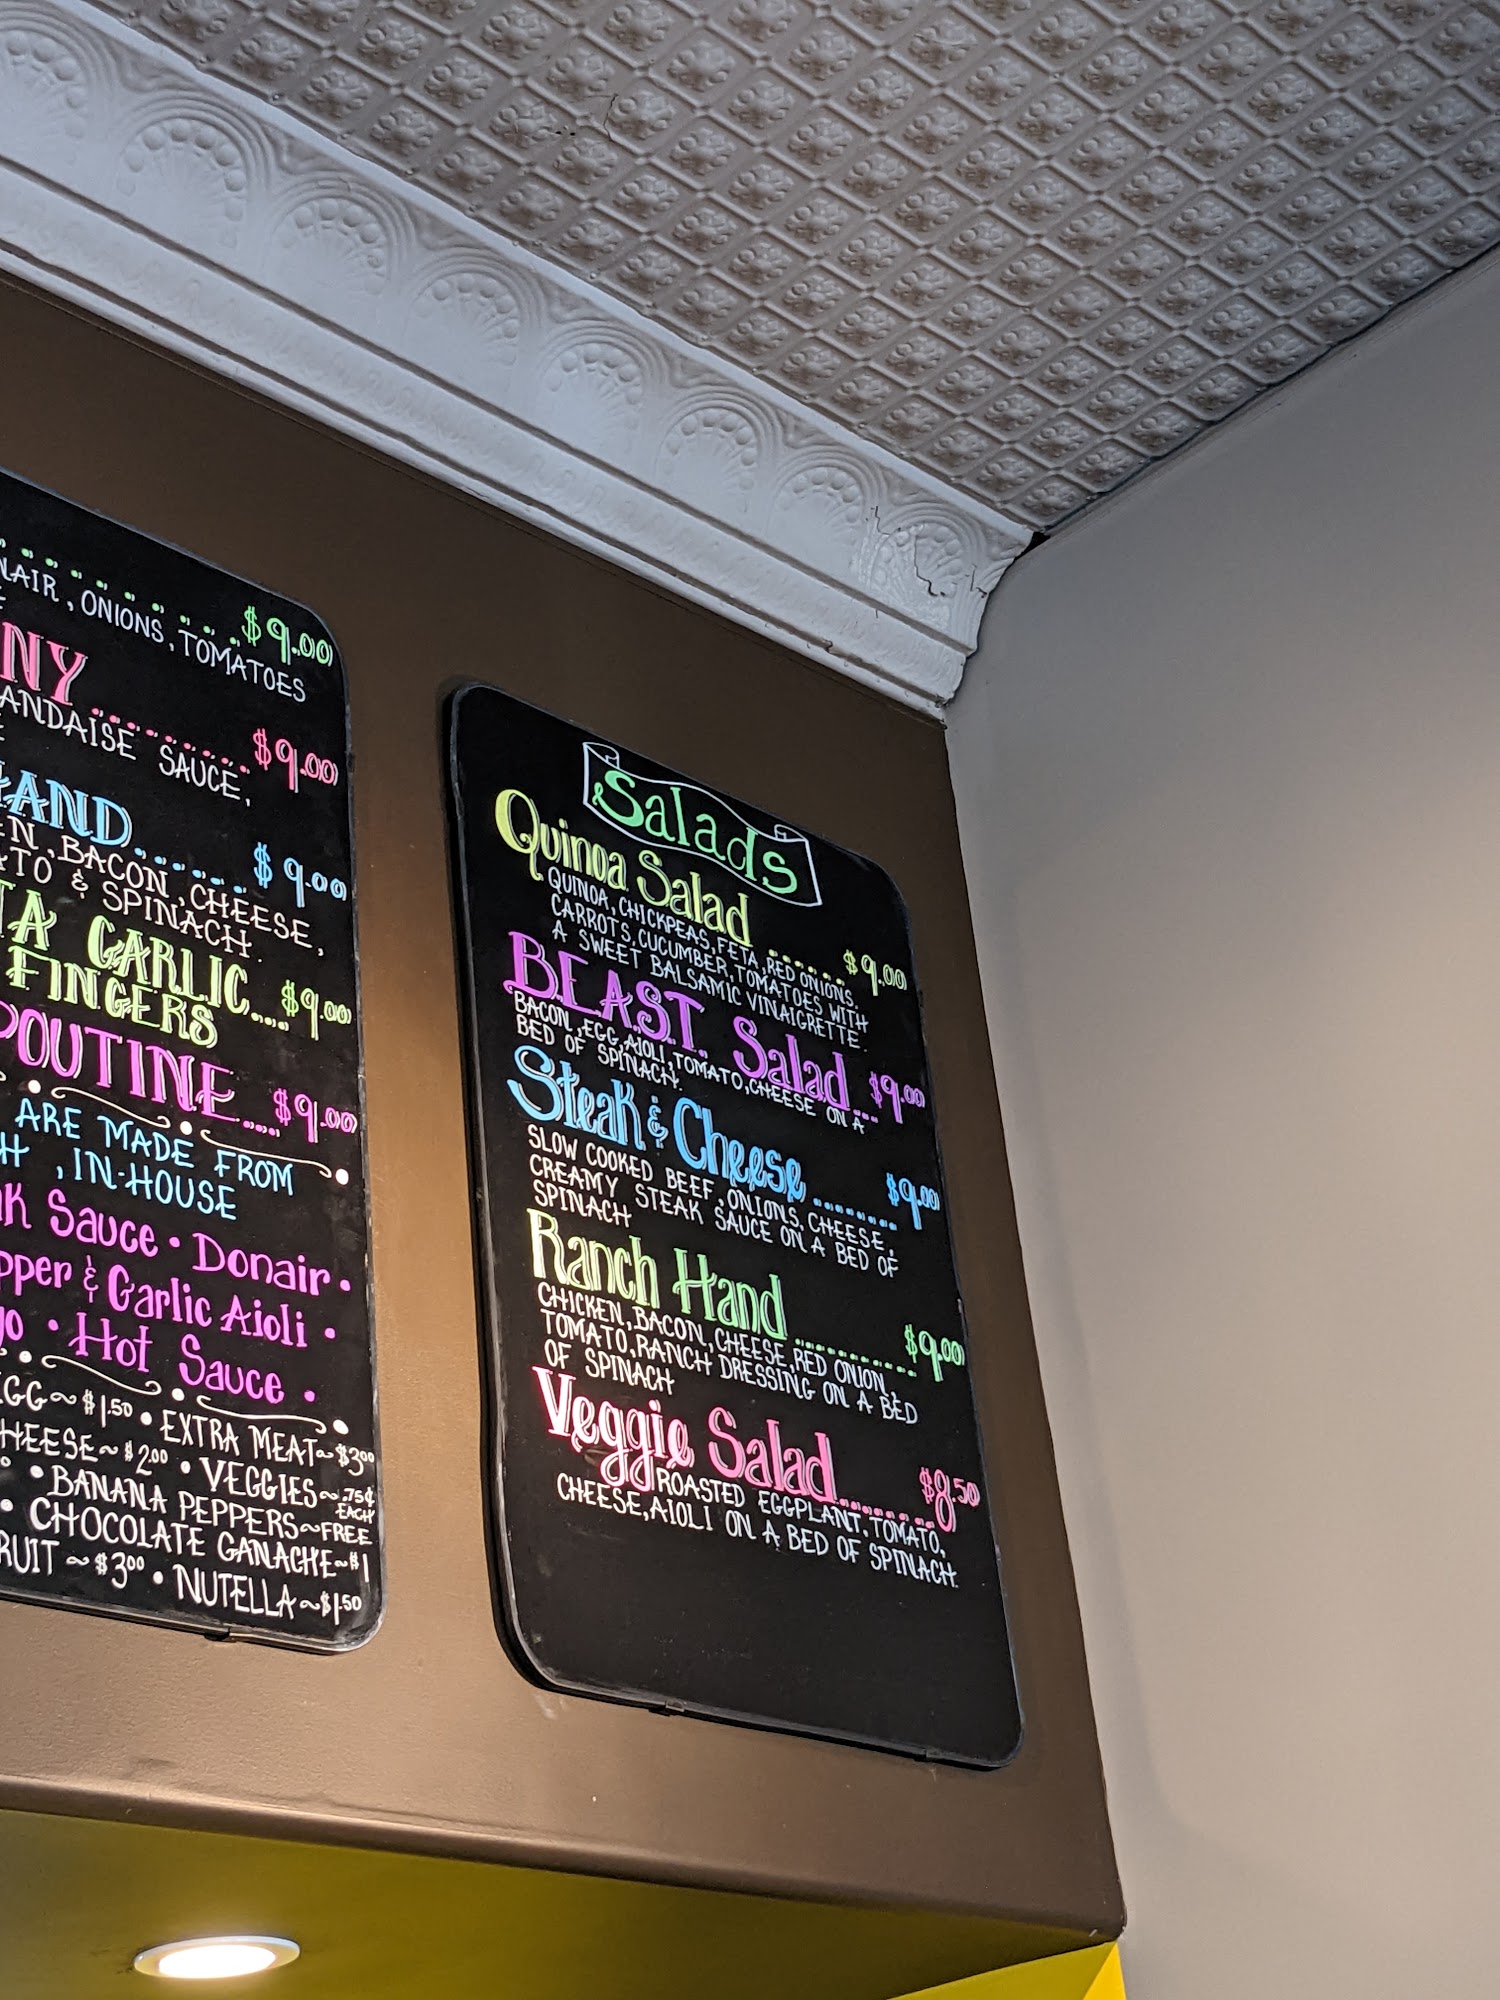 $9.00
NAIR, ONIONS, TOMATOES
NY ......... $9.00
ANDAISE SAUCE,
HAND ....... $9.00
EN, BACON, CHEESE,
TO & SPINACH.
TA GARLIC .... $9.00
FINGERS
POUTINE ..... $9.00
ARE MADE FROM
H, IN-HOUSE
AK Sauce • Donair •
pper & Garlic Aioli •
yo • Hot Sauce •
EGG ~ $1.50 • EXTRA MEAT ~ $3.00
HEESE ~ $2.00 • VEGGIES ~ .75¢ EACH
• BANANA PEPPERS ~ FREE
• CHOCOLATE GANACHE ~ $1
RUIT ~ $3.00 • NUTELLA ~ $1.50
Salads
Quinoa Salad ....... $9.00
QUINOA, CHICKPEAS, FETA, RED ONIONS,
CARROTS, CUCUMBER, TOMATOES WITH
A SWEET BALSAMIC VINAIGRETTE.
B.E.A.S.T. Salad ... $9.00
BACON, EGG, AIOLI, TOMATO, CHEESE ON A
BED OF SPINACH.
Steak & Cheese ........ $9.00
SLOW COOKED BEEF, ONIONS, CHEESE,
CREAMY STEAK SAUCE ON A BED OF
SPINACH
Ranch Hand ........... $9.00
CHICKEN, BACON, CHEESE, RED ONION,
TOMATO, RANCH DRESSING ON A BED
OF SPINACH
Veggie Salad ......... $8.50
ROASTED EGGPLANT, TOMATO,
CHEESE, AIOLI ON A BED OF SPINACH.